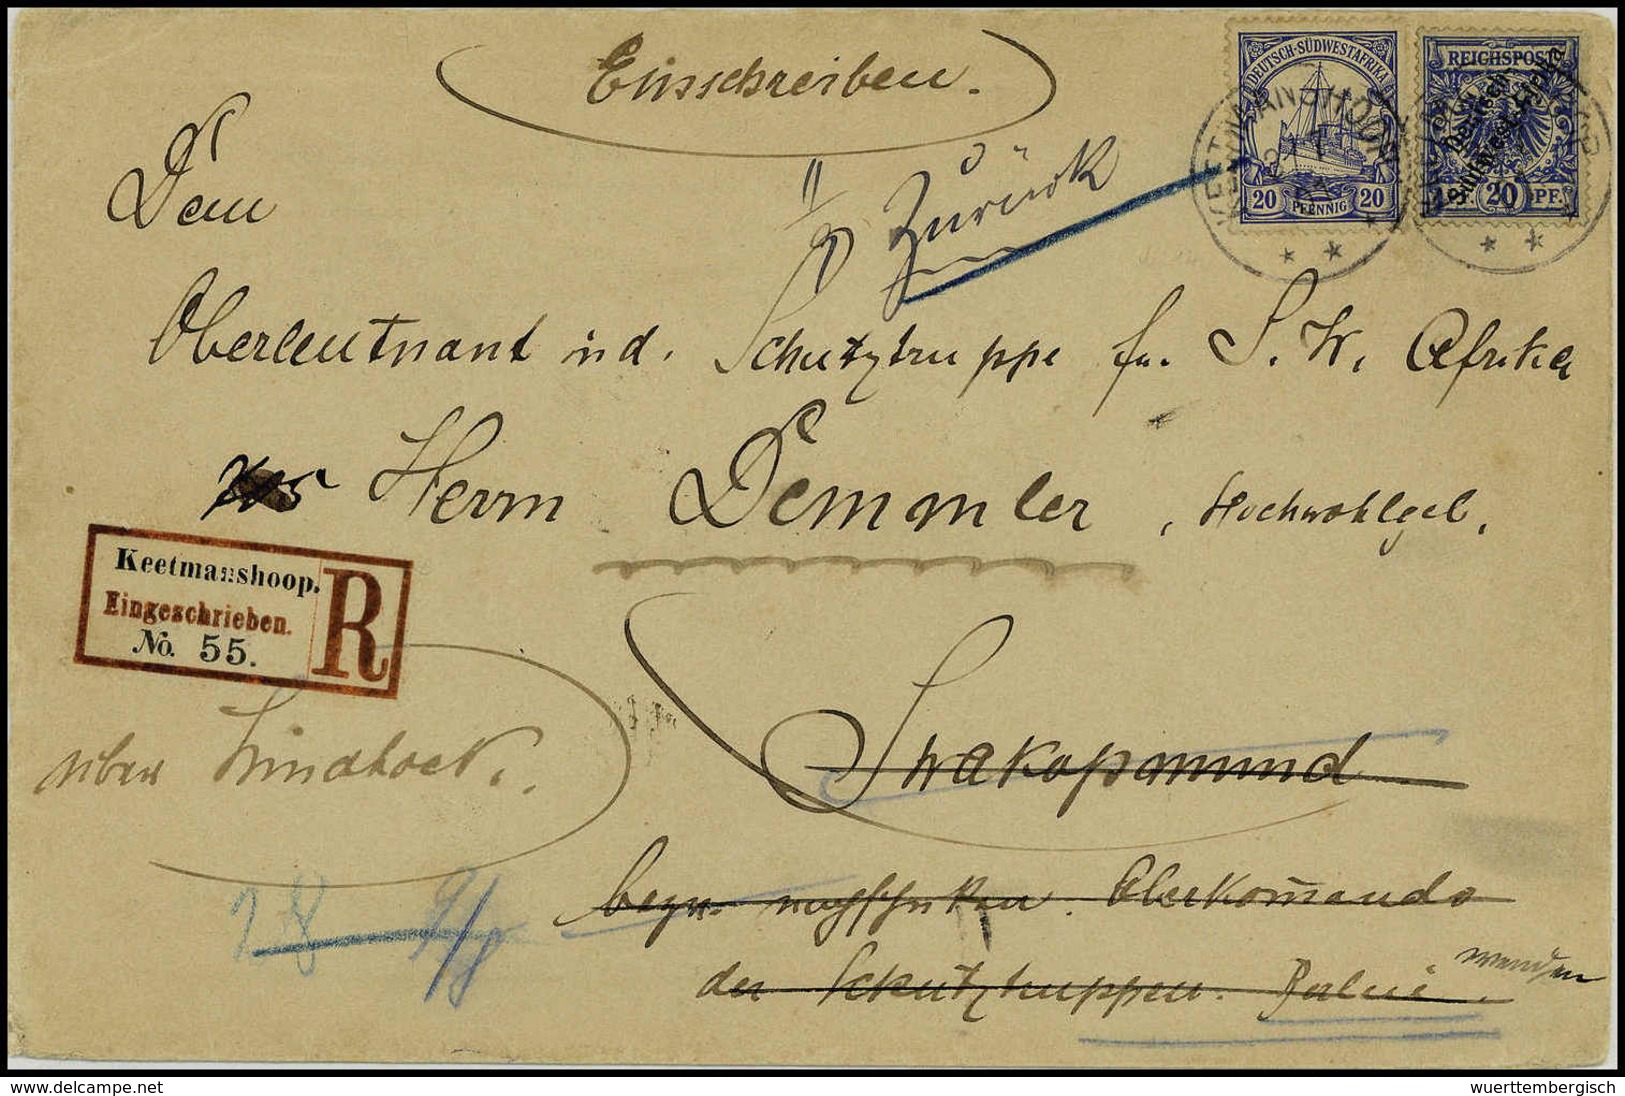 Einschreiben.
DEUTSCH-SÜDWESTAFRIKA
20 PFENNIG 20
REICHSPOST
Deutsch-
Südwest-Afrika
PF. 20 PF.
KEETMANSHOOP
Zurück
Dem
Oberleutnant in d. Schutztruppe für S. W. Afrika
Herrn Demmler, Hochwohlgeb.
Keetmanshoop.
Eingeschrieben.
No. 55.
R
über Windhoek.
Swakopmund
bezw. nachschicken Oberkomando
der Schutztruppen. Berlin.
wenden
www.delcampe.net
wuerttembergisch